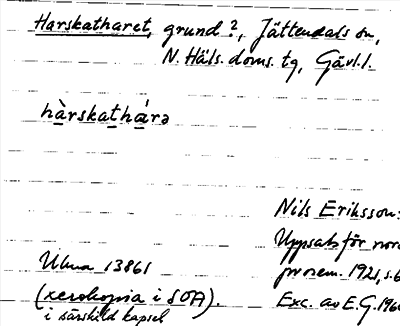 Harskatharet, grund?, Jättendals sn,
N. Häls. doms. tg, Gävl.l.
hàrskatháṛə
Nils Eriksson:
Uppsats för nord
Ulma 13861
prosem. 1921, s.6
(xerokopia i SOA).
Exc. av E.G. 196
i särskild kapsel